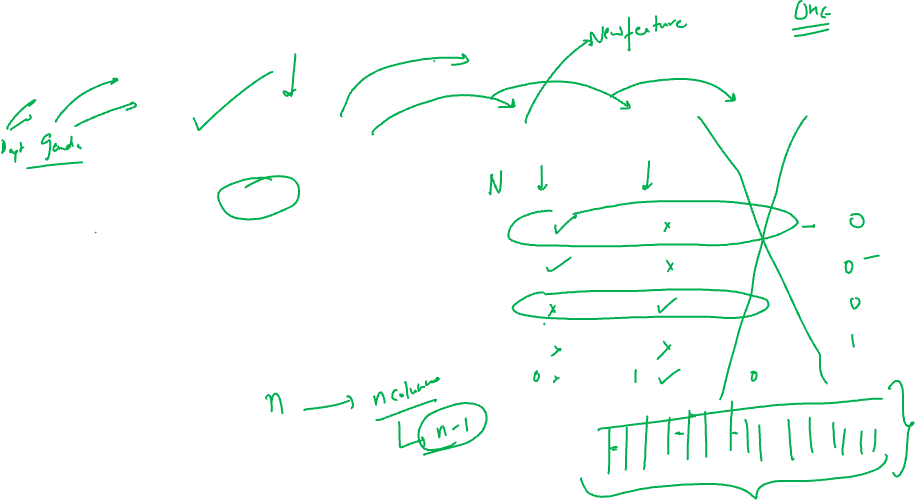 One
New feature
Dept Gende
N
✓ x 0
✓ x 0
x ✓ 0
x x 1
0 x 1 ✓ 0
n → n columns
n-1